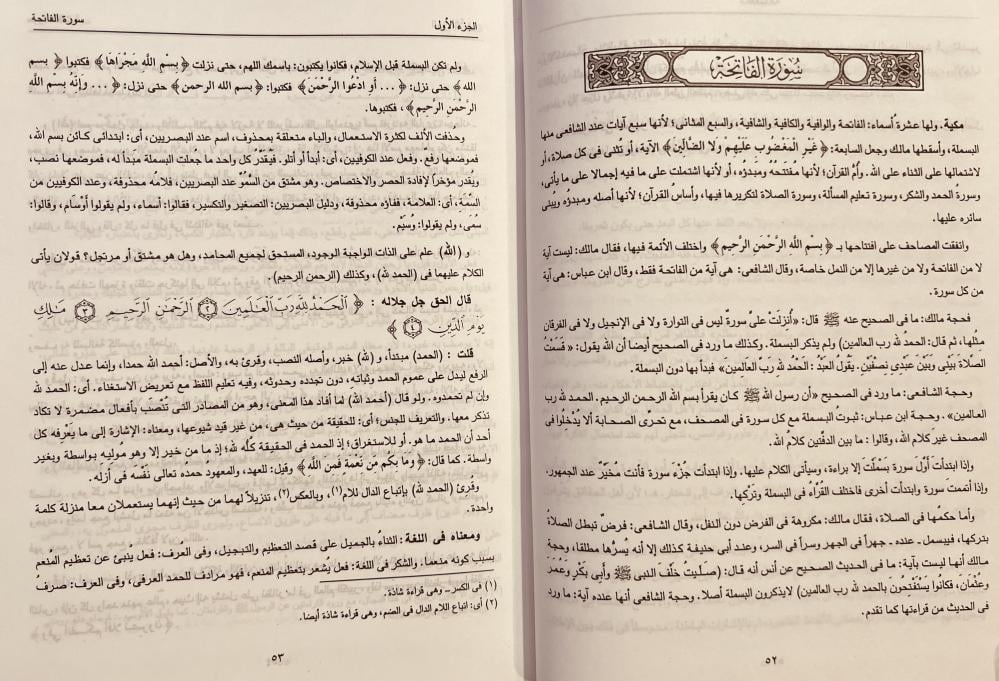 سورة الفاتحة
مكية. ولها عشرة أسماء: الفاتحة والوافية والكافية والشافية، والسبع المثانى؛ لأنها سبع آيات عند الشافعى منها
البسملة، وأسقطها مالك وجعل السابعة: ﴿غَيْرِ الْمَغْضُوبِ عَلَيْهِمْ وَلا الضَّالِّينَ﴾ الآية، أو تثنى فى كل صلاة، أو
لاشتمالها على الثناء على الله. وأمُّ القرآن؛ لأنها مفتتحُه ومبدؤه، أو لأنها اشتملت على ما فيه إجمالا على ما يأتى،
وسورةُ الحمد والشكر، وسورة تعليم المسألة، وسورة الصلاة لتكريرها فيها، وأساس القرآن؛ لأنها أصله ومبدؤه ويُبنى
سائره عليها.
واتفقت المصاحف على افتتاحها بـ ﴿بِسْمِ اللَّهِ الرَّحْمَنِ الرَّحِيمِ﴾ واختلف الأئمة فيها، فقال مالك: ليست آية
لا من الفاتحة ولا من غيرها إلا من النمل خاصة، وقال الشافعى: هى آية من الفاتحة فقط، وقال ابن عباس: هى آية
من كل سورة.
فحجة مالك: ما فى الصحيح عنه ﷺ قال: «أُنزلَتْ علىَّ سورةٌ ليس فى التوارة ولا فى الإنجيل ولا فى الفرقان
مثلها، ثم قال: الحمد لله رب العالمين) ولم يذكر البسملة. وكذلك ما ورد فى الصحيح أيضا أن الله يقول: «قسمتُ
الصلاة بَيْنى وبَيْن عَبْدى نصْفَين. يقولُ العبْد: الحمدُ لله رب العالمين» فبدأ بها دون البسملة.
وحجة الشافعى: ما ورد فى الصحيح «أن رسول الله ﷺ كان يقرأ بسم الله الرحمن الرحيم. الحمد لله رب
العالمين». وحجة ابن عباس: ثبوتُ البسملة مع كل سورة فى المصحف، مع تحرىّ الصحابة ألا يُدْخلُوا فى
المصحف غيرَ كلام الله، وقالوا: ما بين الدفَّتين كلامُ الله.
وإذا ابتدأت أوَّلَ سورة بَسْمَلْتَ إلا براءة، وسيأتى الكلام عليها. وإذا ابتدأتَ جُزْءَ سورة فأنت مُخيَّر عند الجمهور،
وإذا أتممتَ سورة وابتدأت أخرى فاختلف القُرَّاءُ فى البسملة وتركِها.
وأما حكمُها فى الصلاة، فقال مالك: مكروهة فى الفرض دون النفل، وقال الشافعى: فرضٌ تبطل الصلاةُ
بتركها، فيبسمل ـ عنده ـ جهراً فى الجهر وسراً فى السر، وعند أبى حنيفة كذلك إلا أنه يُسرُّها مطلقا، وحجة
مالك أنها ليست بآية: ما فى الحديث الصحيح عن أنس أنه قال: (صَليتُ خلْفَ النبى ﷺ وأبِى بَكْرٍ وعُمَرَ
وعُثمَانَ، فكَانُوا يَسْتَفْتحُونَ بالحمد لله رب العالمين) لايذكرون البسملة أصلا. وحجة الشافعى أنها عنده آية: ما ورد
فى الحديث من قراءتها كما تقدم.
٥٢
الجزء الأول
سورة الفاتحة
ولم تكن البسملة قبل الإسلام، فكانوا يكتبون: باسمك اللهم، حتى نزلت ﴿بِسْمِ اللَّهِ مَجْرَاهَا﴾ فكتبوا: ﴿بسم
الله﴾ حتى نزل: ﴿... أَوِ ادْعُوا الرَّحْمَنَ﴾ فكتبوا: ﴿بسم الله الرحمن﴾ حتى نزل: ﴿... وَإِنَّهُ بِسْمِ اللَّهِ
الرَّحْمَنِ الرَّحِيمِ﴾، فكتبوها.
وحُذفت الألف لكثرة الاستعمال، والباء متعلقة بمحذوف، اسم عند البصريين، أى: ابتدائى كائن بسم الله،
فموضعها رفع. وفعل عند الكوفيين، أى: أبدأ أو أتلو. فيُقَدِّرُ كل واحد ما جعلت البسملة مبدأ له، فموضعها نصب،
ويُقدر مؤخراً لإفادة الحصر والاختصاص. وهو مشتق من السُّمُوِّ عند البصريين، فلامُه محذوفة، وعند الكوفيين من
السِّمَةِ، أى: العلامة، ففَاؤه محذوفة، ودليل البصريين: التصغير والتكسير، فقالوا: أسماء، ولم يقولوا أوْسَام، وقالوا:
سُمَى، ولم يقولوا: وُسَيْم.
و (الله) علم على الذات الواجبة الوجود، المستحق لجميع المحامد، وهل هو مشتق أو مرتجل؟ قولان يأتى
الكلام عليهما فى (الحمد لله)، وكذلك (الرحمن الرحيم).
قال الحق جل جلاله : ﴿ الْحَمْدُ لِلَّهِ رَبِّ الْعَالَمِينَ ۝٢ الرَّحْمَنِ الرَّحِيمِ ۝٣ مَالِكِ
يَوْمِ الدِّينِ ۝٤ ﴾
قلت : (الحمد) مبتدأ، و (لله) خبر، وأصله النصب، وقرئ به، والأصل: أحمد الله حمدا، وإنما عدل عنه إلى
الرفع ليدل على عموم الحمد وثباته، دون تجدده وحدوثه، وفيه تعليم اللفظ مع تعريض الاستغناء. أى: الحمد لله
وإن لم تحمدوه. ولو قال (أحمد الله) لما أفاد هذا المعنى، وهو من المصادر التى تُنْصَب بأفعال مضمرة لا تكاد
تذكر معها. والتعريف للجنس؛ أى: للحقيقة من حيث هى، من غير قيد شيوعها، ومعناه: الإشارة إلى ما يَعْرفه كل
أحد أن الحمد ما هو. أو للاستغراق؛ إذ الحمد فى الحقيقة كُلُّه لله؛ إذ ما من خير إلا وهو موليه بواسطة وبغير
واسطة. كما قال: ﴿وَمَا بِكُم مِّن نِّعْمَةٍ فَمِنَ اللَّهِ﴾ وقيل: للعهد، والمعهود حمدُه تعالى نَفْسَه فى أزَلِه.
وقُرئ (الحمد لله) بإتباع الدال للام(١)، وبالعكس(٢)، تنزيلاً لهما من حيث إنهما يستعملان معا منزلة كلمة
واحدة.
ومعناه فى اللغة: الثناءُ بالجميل على قصد التعظيم والتبجيل، وفى العرف: فعل يُنبئ عن تعظيم المُنعم
بسبب كونه منعماً. والشكر فى اللغة: فعل يشعر بتعظيم المنعم، فهو مرادف للحمد العرفى، وفى العرف: صرفُ
(١) فى الكسر ـ وهى قراءة شاذة.
(٢) أى: اتباع اللام الدال فى الضم، وهى قراءة شاذة أيضا.
٥٣